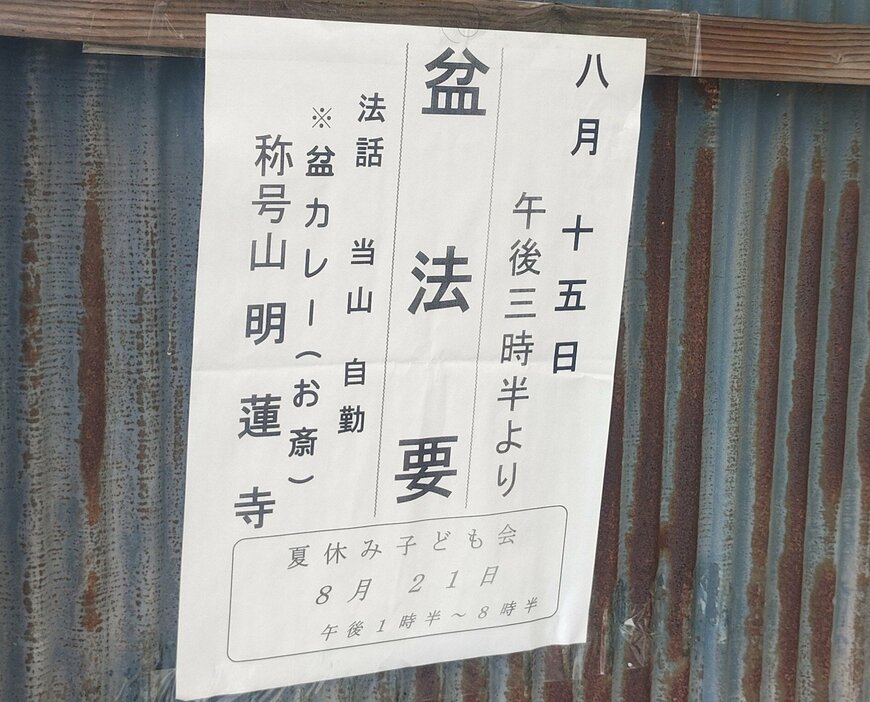 八月 十五日
午後三時半より
盆法要
法話 当山 自勤
※盆カレー(お斎)
称号山 明蓮寺
夏休み子ども会
8月 21日
午後1時半~8時半